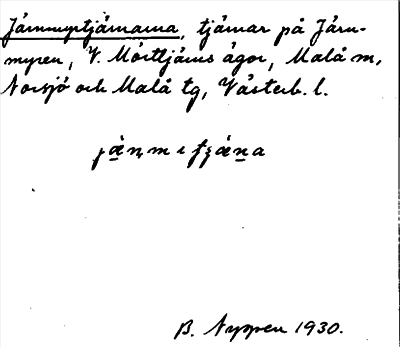 Järnmyrtjärnarna, tjärnar på Järn-
myren, V. Mörttjärns ägor, Malå m,
Norsjö och Malå tg, Västerb. l.
B. Nyppen 1930.